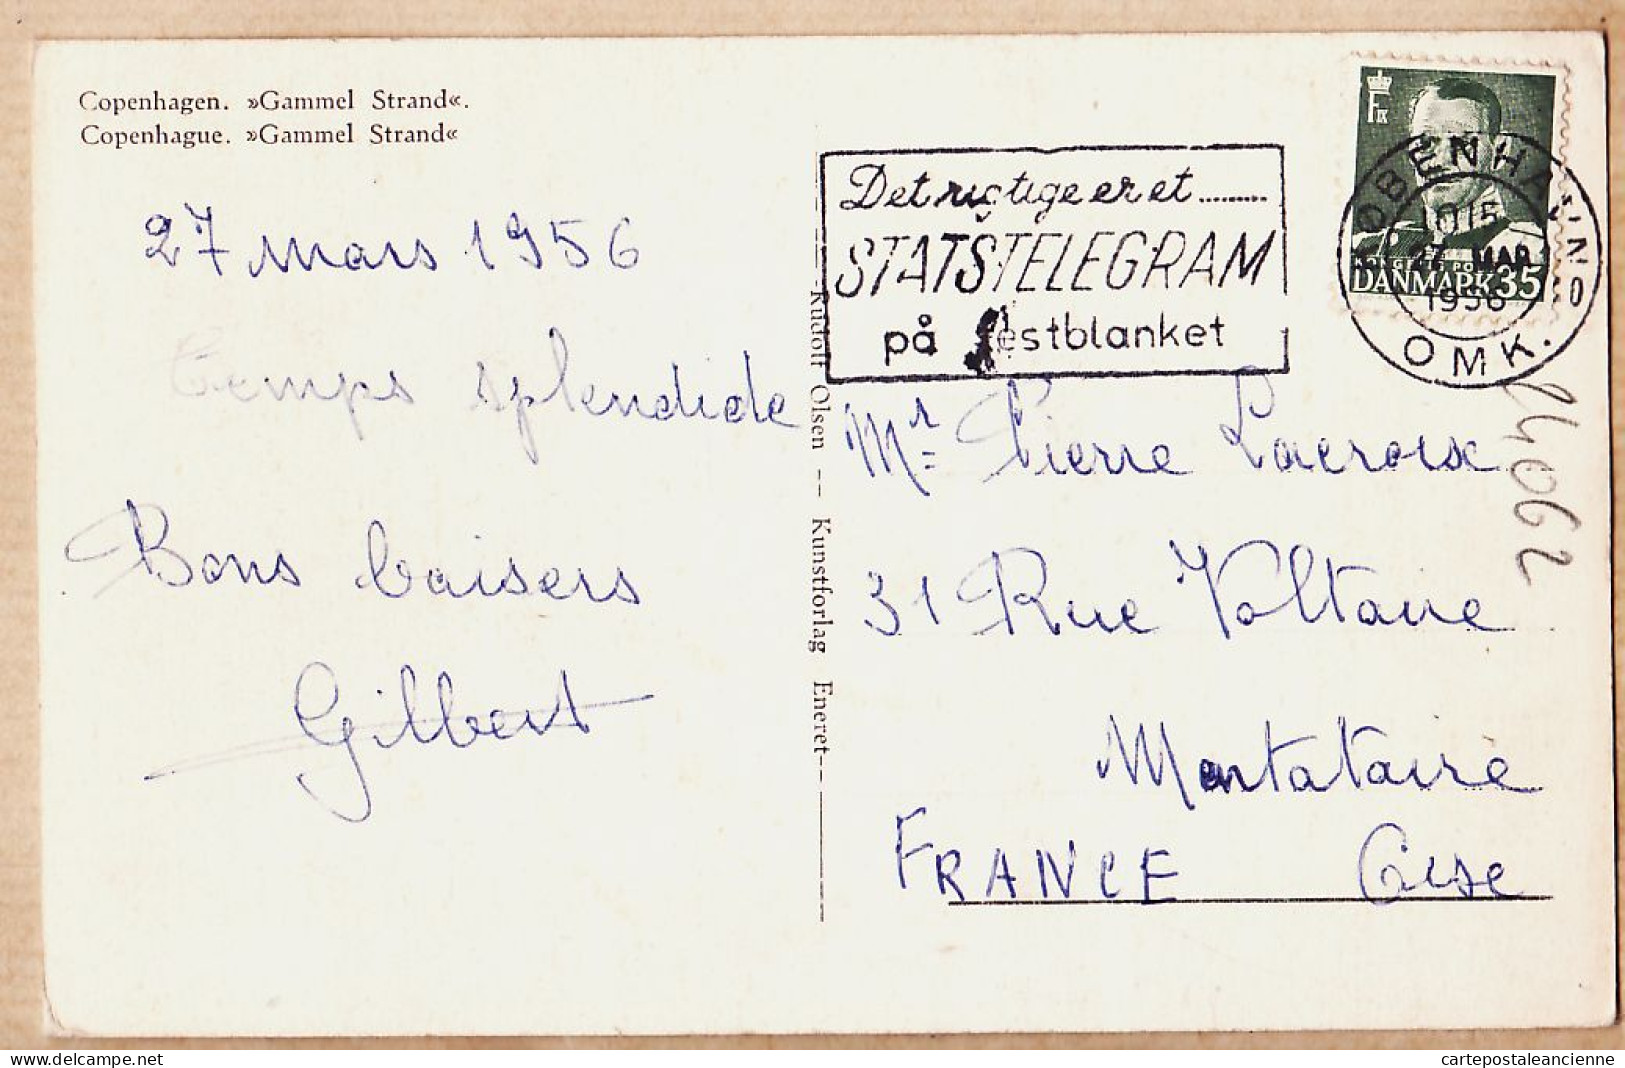 Copenhagen. »Gammel Strand«.
Copenhague. »Gammel Strand«
27 mars 1956
Temps splendide
Bons baisers
Gilbert
Rudolf Olsen -- Kunstforlag Eneret--
Det rigtige er et ........
STATSTELEGRAM
på festblanket
F IX
DANMARK 35
KØBENHAVN
OMK.
1015
27 MAR
1956
Mr Pierre Lacroix
31 Rue Voltaire
Montataire
FRANCE Oise
cartepostaleancienne
www.delcampe.net